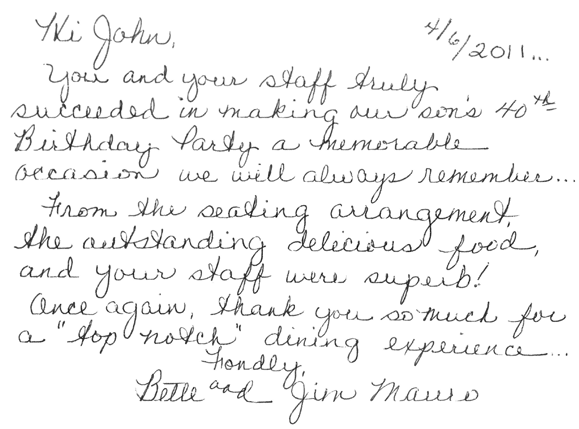 Hi John,
4/6/2011...
You and your staff truly
succeeded in making our son's 40th
Birthday Party a memorable
occasion we will always remember...
From the seating arrangement,
the outstanding delicious food,
and your staff were superb!
Once again, thank you so much for
a "top notch" dining experience...
Fondly,
Bette and Jim Mauro